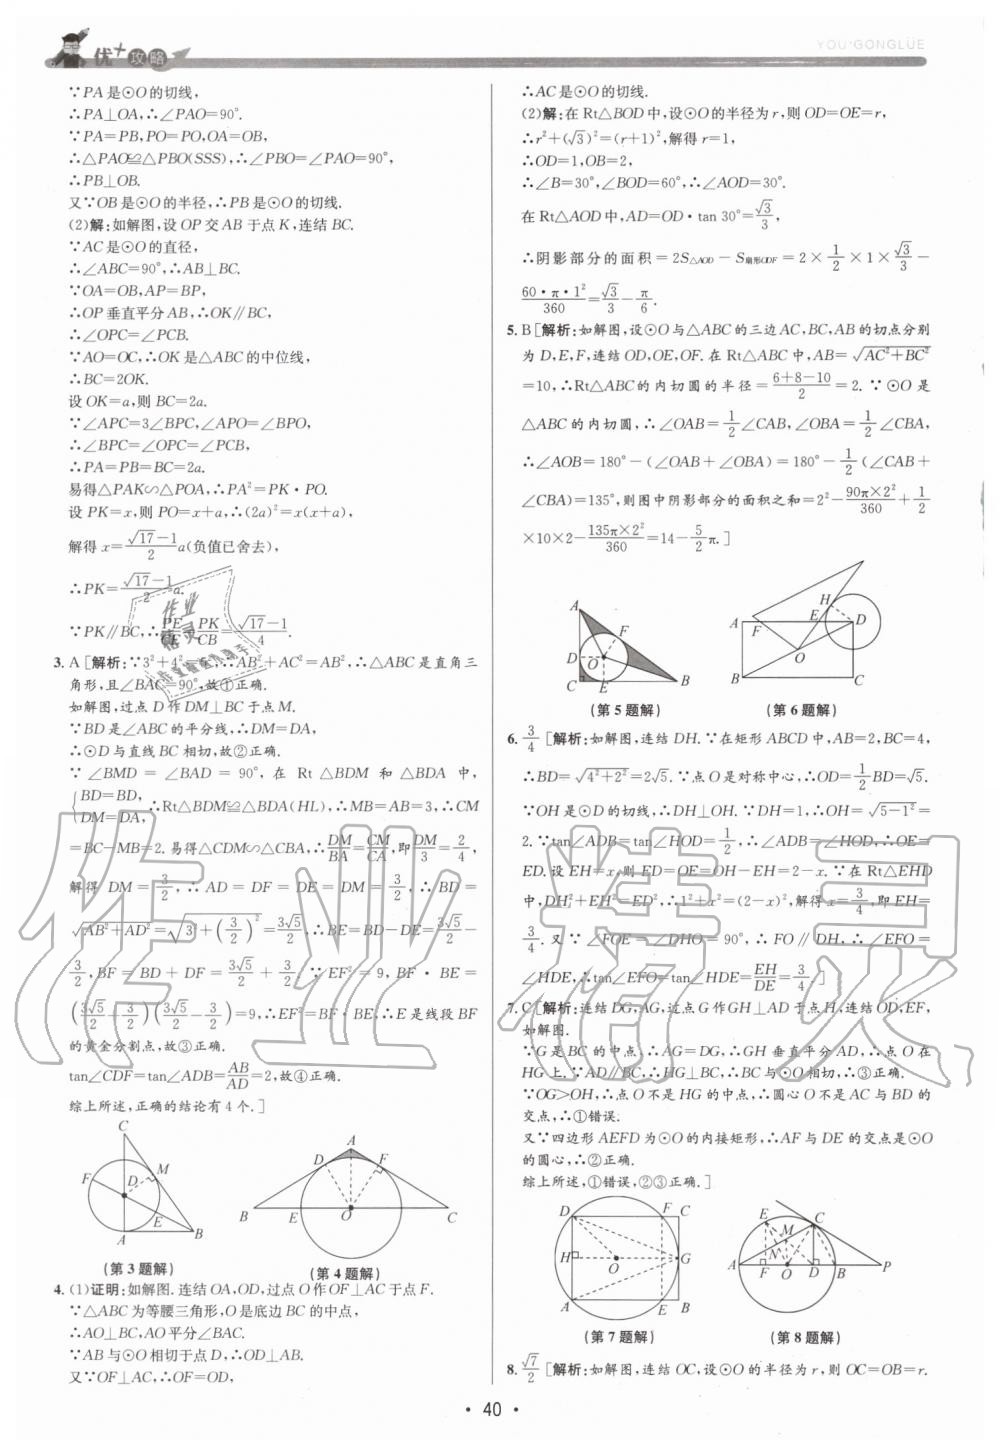 优+攻略
YOU+GONGLÜE
∵PA是⊙O的切线,
∴PA⊥OA,∴∠PAO=90°.
∵PA=PB,PO=PO,OA=OB,
∴△PAO≌△PBO(SSS),∴∠PBO=∠PAO=90°,
∴PB⊥OB.
又∵OB是⊙O的半径,∴PB是⊙O的切线.
(2)解:如解图,设OP交AB于点K,连结BC.
∵AC是⊙O的直径,
∴∠ABC=90°,∴AB⊥BC.
∵OA=OB,AP=BP,
∴OP垂直平分AB,∴OK∥BC,
∴∠OPC=∠PCB.
∵AO=OC,∴OK是△ABC的中位线,
∴BC=2OK.
设OK=a,则BC=2a.
∵∠APC=3∠BPC,∠APO=∠BPO,
∴∠BPC=∠OPC=∠PCB,
∴PA=PB=BC=2a.
易得△PAK∽△POA,∴PA²=PK·PO.
设PK=x,则PO=x+a,∴(2a)²=x(x+a),
解得x=(√17-1)/2 a(负值已舍去),
∴PK=(√17-1)/2 a.
∵PK∥BC,∴PE/CE=PK/CB=(√17-1)/4.
3. A [解析:∵3²+4²=5²,∴AB²+AC²=AB²,∴△ABC是直角三
角形,且∠BAC=90°,故①正确.
如解图,过点D作DM⊥BC于点M.
∵BD是∠ABC的平分线,∴DM=DA,
∴⊙D与直线BC相切,故②正确.
∵∠BMD=∠BAD=90°,在Rt△BDM和△BDA中,
{BD=BD, DM=DA, ∴Rt△BDM≌△BDA(HL),∴MB=AB=3,∴CM
=BC-MB=2.易得△CDM∽△CBA,∴DM/BA=CM/CA,即DM/3=2/4,
解得DM=3/2,∴AD=DF=DE=DM=3/2,∴BD=
√(AB²+AD²)=√(3²+(3/2)²)=3√5/2,∴BE=BD-DE=3√5/2-
3/2,BF=BD+DF=3√5/2+3/2.∵EF²=9,BF·BE=
(3√5/2-3/2)(3√5/2-3/2)=9,∴EF²=BF·BE,∴E是线段BF
的黄金分割点,故③正确.
tan∠CDF=tan∠ADB=AB/AD=2,故④正确.
综上所述,正确的结论有4个.]
C F D M E A B
(第3题解)
A D F B E O C
(第4题解)
4. (1)证明:如解图.连结OA,OD,过点O作OF⊥AC于点F.
∵△ABC为等腰三角形,O是底边BC的中点,
∴AO⊥BC,AO平分∠BAC.
∵AB与⊙O相切于点D,∴OD⊥AB.
又∵OF⊥AC,∴OF=OD,
∴AC是⊙O的切线.
(2)解:在Rt△BOD中,设⊙O的半径为r,则OD=OE=r,
∴r²+(√3)²=(r+1)²,解得r=1,
∴OD=1,OB=2,
∴∠B=30°,∠BOD=60°,∴∠AOD=30°.
在Rt△AOD中,AD=OD·tan 30°=√3/3,
∴阴影部分的面积=2S△AOD-S扇形ODF=2×1/2×1×√3/3-
60·π·1²/360=√3/3-π/6.
5. B [解析:如解图,设⊙O与△ABC的三边AC,BC,AB的切点分别
为D,E,F,连结OD,OE,OF.在Rt△ABC中,AB=√(AC²+BC²)
=10,∴Rt△ABC的内切圆的半径=(6+8-10)/2=2.∵⊙O是
△ABC的内切圆,∴∠OAB=1/2∠CAB,∠OBA=1/2∠CBA,
∴∠AOB=180°-(∠OAB+∠OBA)=180°-1/2(∠CAB+
∠CBA)=135°,则图中阴影部分的面积之和=2²-90π×2²/360+1/2
×10×2-135π×2²/360=14-5/2π.]
A F D O C E B
(第5题解)
H A F E D O B C
(第6题解)
6. 3/4 [解析:如解图,连结DH.∵在矩形ABCD中,AB=2,BC=4,
∴BD=√(4²+2²)=2√5.∵点O是对称中心,∴OD=1/2BD=√5.
∵OH是⊙D的切线,∴DH⊥OH.∵DH=1,∴OH=√(5-1²)=
2.∵tan∠ADB=tan∠HOD=1/2,∴∠ADB=∠HOD,∴OE=
ED.设EH=x,则ED=OE=OH-EH=2-x.∵在Rt△EHD
中,DH²+EH²=ED²,∴1²+x²=(2-x)²,解得x=3/4,即EH=
3/4.又∵∠FOE=∠DHO=90°,∴FO∥DH,∴∠EFO=
∠HDE,∴tan∠EFO=tan∠HDE=EH/DE=3/4.]
7. C [解析:连结DG,AG,过点G作GH⊥AD于点H,连结OD,EF,
如解图.
∵G是BC的中点,∴AG=DG,∴GH垂直平分AD,∴点O在
HG上.∵AD∥BC,∴HG⊥BC,∴BC与⊙O相切,∴③正确.
∵OG>OH,∴点O不是HG的中点,∴圆心O不是AC与BD的
交点,∴①错误.
又∵四边形AEFD为⊙O的内接矩形,∴AF与DE的交点是⊙O
的圆心,∴②正确.
综上所述,①错误,②③正确.]
D F C H O G A E B
(第7题解)
E C M N A F O D B P
(第8题解)
8. √7/2 [解析:如解图,连结OC,设⊙O的半径为r,则OC=OB=r.
· 40 ·
作业精灵
作业
精灵